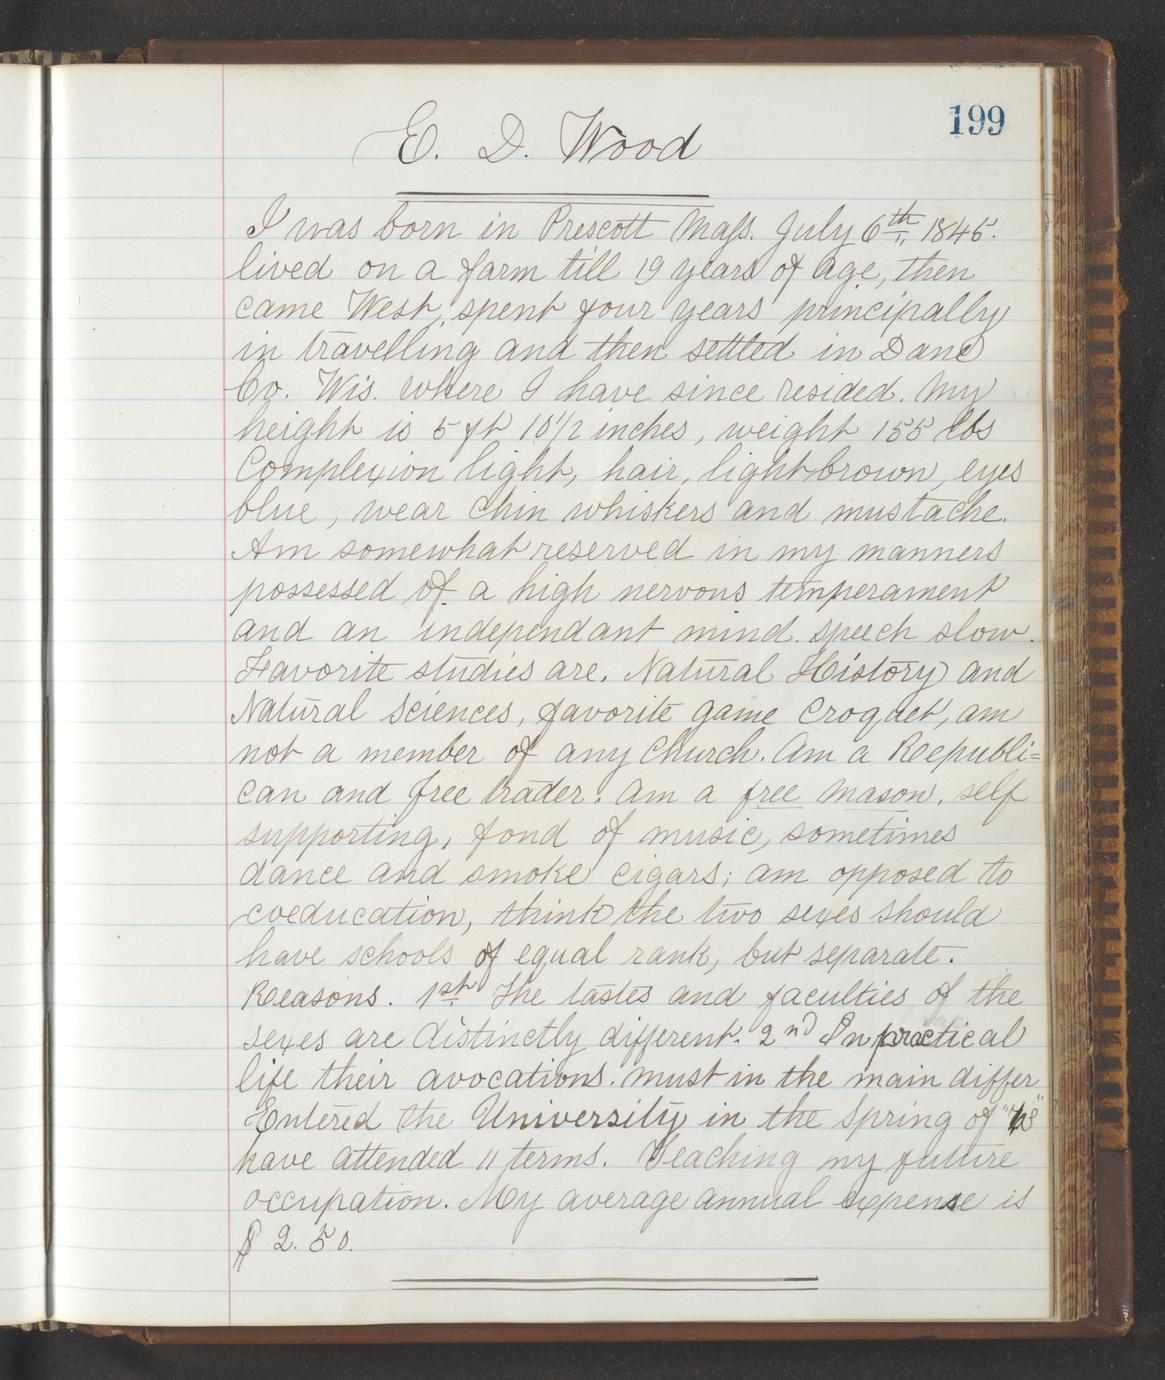 199
E. D. Wood
I was born in Prescott Mass. July 6th, 1845.
lived on a farm till 19 years of age, then
came West, spent four years principally
in travelling and then settled in Dane
Co. Wis. where I have since resided. My
height is 5 ft 10 1/2 inches, weight 155 lbs
Complexion light, hair, light brown, eyes
blue, wear Chin whiskers and mustache.
Am somewhat reserved in my manners
possessed of a high nervous temperament
and an independant mind. speech slow.
Favorite studies are. Natural History and
Natural Sciences, favorite game Croquet, am
not a member of any Church. Am a Republi=
can and free trader. Am a free Mason, self
supporting, fond of music, sometimes
dance and smoke cigars; am opposed to
coeducation, think the two sexes should
have schools of equal rank, but separate.
Reasons. 1st The tastes and faculties of the
sexes are distinctly different. 2nd In practical
life their avocations. must in the main differ
Entered the University in the Spring of
have attended 11 terms. Teaching my future
occupation. My average annual expense is
$ 2.50.